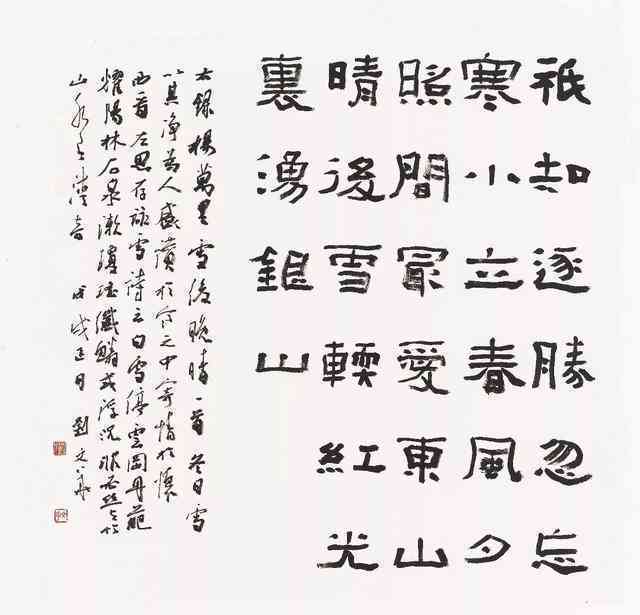 祇知逐勝忽忘
寒小立春風夕
照間冣愛東山
晴後雪輭紅光
裏湧銀山
右錄楊萬里雪後晚晴一首冬日雪
以其净為人盛讚於之中寄情於懷
西晋左思存詠雪詩云白雪停雲岡丹葩
耀陽林石泉漱瓊瑤纖鱗或浮沉非必絲與竹
山水有清音 戊戌正月 劉文華